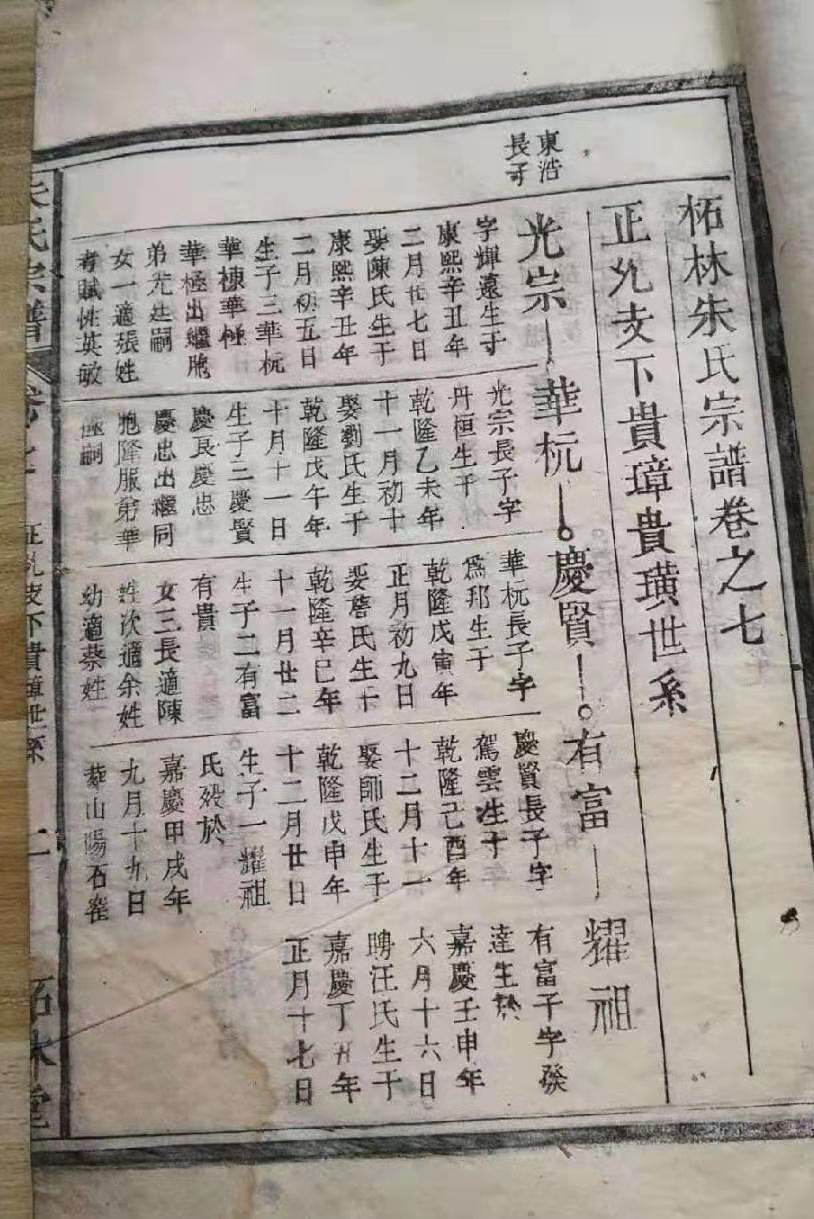 柘林朱氏宗譜卷之七
正九支下貴璋貴璜世系
東浩
長子
光宗
字輝遠生于
康熙辛丑年
二月廿七日
娶陳氏生于
康熙辛丑年
二月初五日
生子三華杬
華棟華極
華極出繼胞
弟光廷嗣
女一適張姓
者賦性英敏
華杬
光宗長子字
丹桓生于
乾隆乙未年
十一月初十
娶劉氏生于
乾隆戊午年
十月十一日
生子三慶賢
慶長慶忠
慶忠出繼同
胞隆服弟華
極嗣
慶賢
華杬長子字
為邦生于
乾隆戊寅年
正月初九日
娶詹氏生于
乾隆辛巳年
十一月廿二
生子二有富
有貴
女三長適陳
姓次適余姓
幼適蔡姓
有富
慶賢長子字
駕雲生于
乾隆己酉年
十二月十一
娶師氏生于
乾隆戊申年
十二月廿日
生子一耀祖
氏歿於
嘉慶甲戌年
九月十九日
葬山陽石窪
耀祖
有富子字發
達生於
嘉慶壬申年
六月十六日
聘汪氏生于
嘉慶丁丑年
正月十七日
朱氏宗譜
卷七
正九支下貴璋世系
一
柘林堂